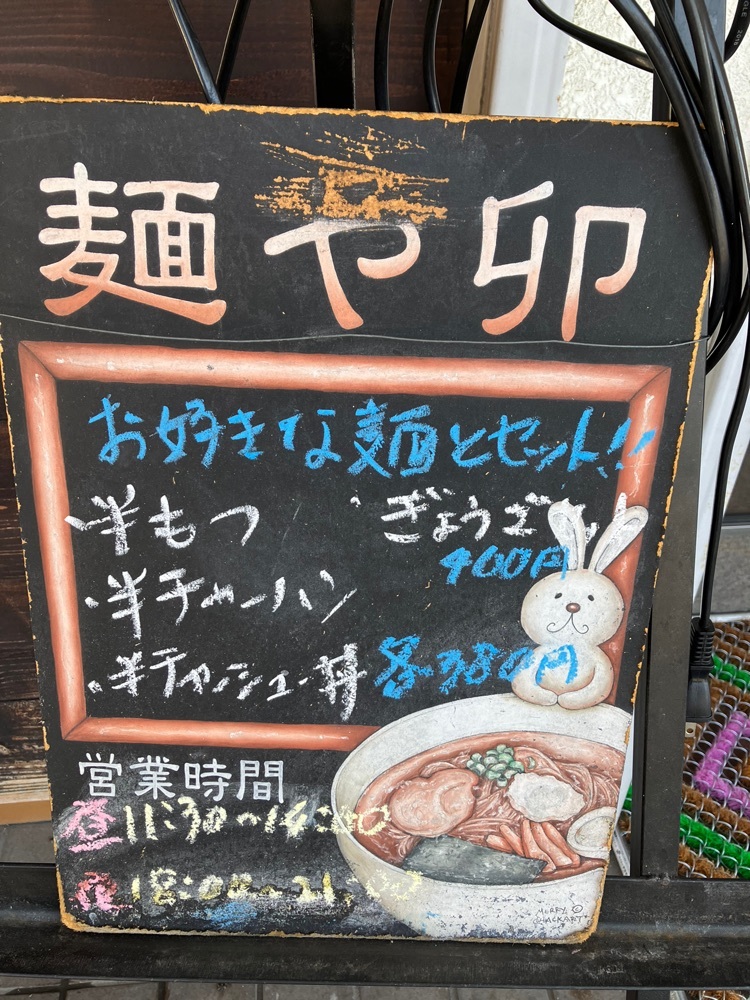 麺や卯
お好きな麺とセット!!
・半もつ
・ぎょうざ
400円
・半チャーハン
・半チャーシュー丼 各380円
営業時間
昼 11:30〜14:00
夜 18:00〜21:00
MERRY © BLACKART